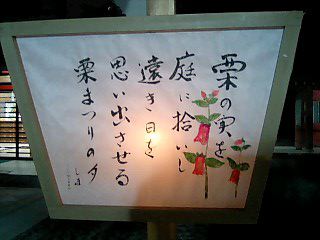 栗の実を
庭に拾いし
遠き日を
思い出させる
栗まつりの夕